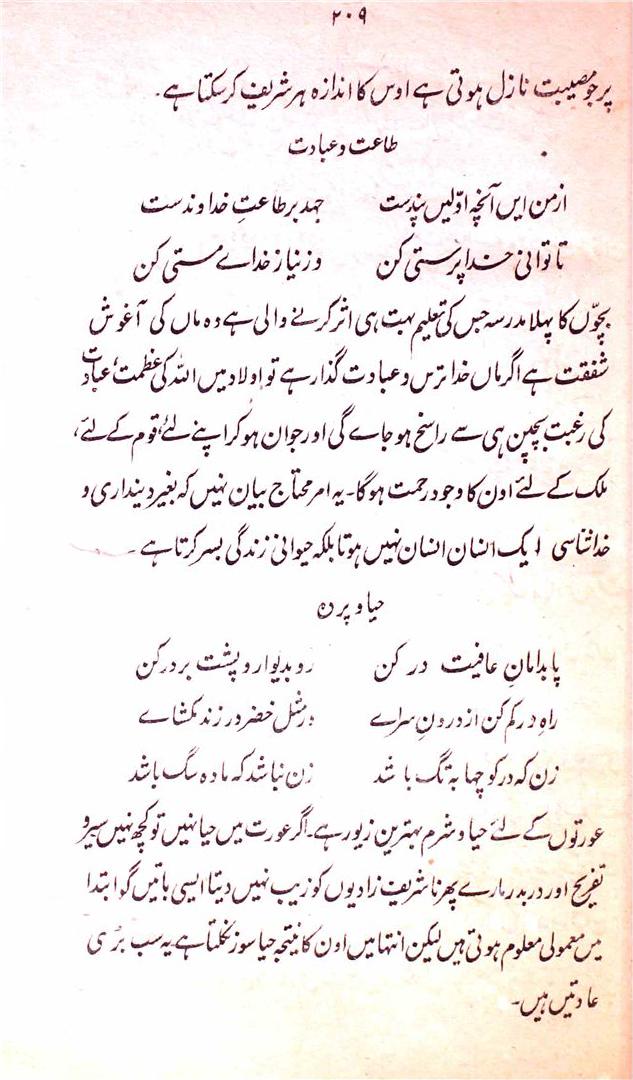 ۲۰۹
پر جو مصیبت نازل ہوتی ہے اوس کا اندازہ ہر شریف کرسکتا ہے۔
طاعت و عبادت
از من ایں آنچہ اوّلیں پندست جہد بر طاعتِ خداوندست
تا توانی خدا پرستی کن وز نیاز خداے مستی کن
بچوّں کا پہلا مدرسہ جس کی تعلیم بہت ہی اثر کرنے والی ہے وہ ماں کی آغوش
شفقت ہے اگر ماں خدا ترس و عبادت گذار ہے تو اولاد میں اللہ کی عظمت، عبادت
کی رغبت بچپن ہی سے راسخ ہو جاے گی اور جوان ہو کر اپنے لئے، قوم کے لئے،
ملک کے لئے اون کا وجود رحمت ہوگا۔ یہ امر محتاج بیان نہیں کہ بغیر دینداری و
خدا شناسی ایک انسان انسان نہیں ہوتا بلکہ حیوانی زندگی بسر کرتا ہے۔
حیا و پردہ
پا بدامانِ عافیت در کن رو بدیوار و پشت بر در کن
راہِ در گم کن از درونِ سراے در مثل خضر در زند مکشاے
زن کہ در کوچہا بہ تگ باشد زن نباشد کہ مادہ سگ باشد
عورتوں کے لئے حیا و شرم بہترین زیور ہے۔ اگر عورت میں حیا نہیں تو کچھ نہیں سیر و
تفریح اور در بدر مارے پھرنا شریف زادیوں کو زیب نہیں دیتا ایسی باتیں گو ابتدا
میں معمولی معلوم ہوتی ہیں لیکن انتہا میں اون کا نتیجہ حیا سوز نکلتا ہے یہ سب بری
عادتیں ہیں۔